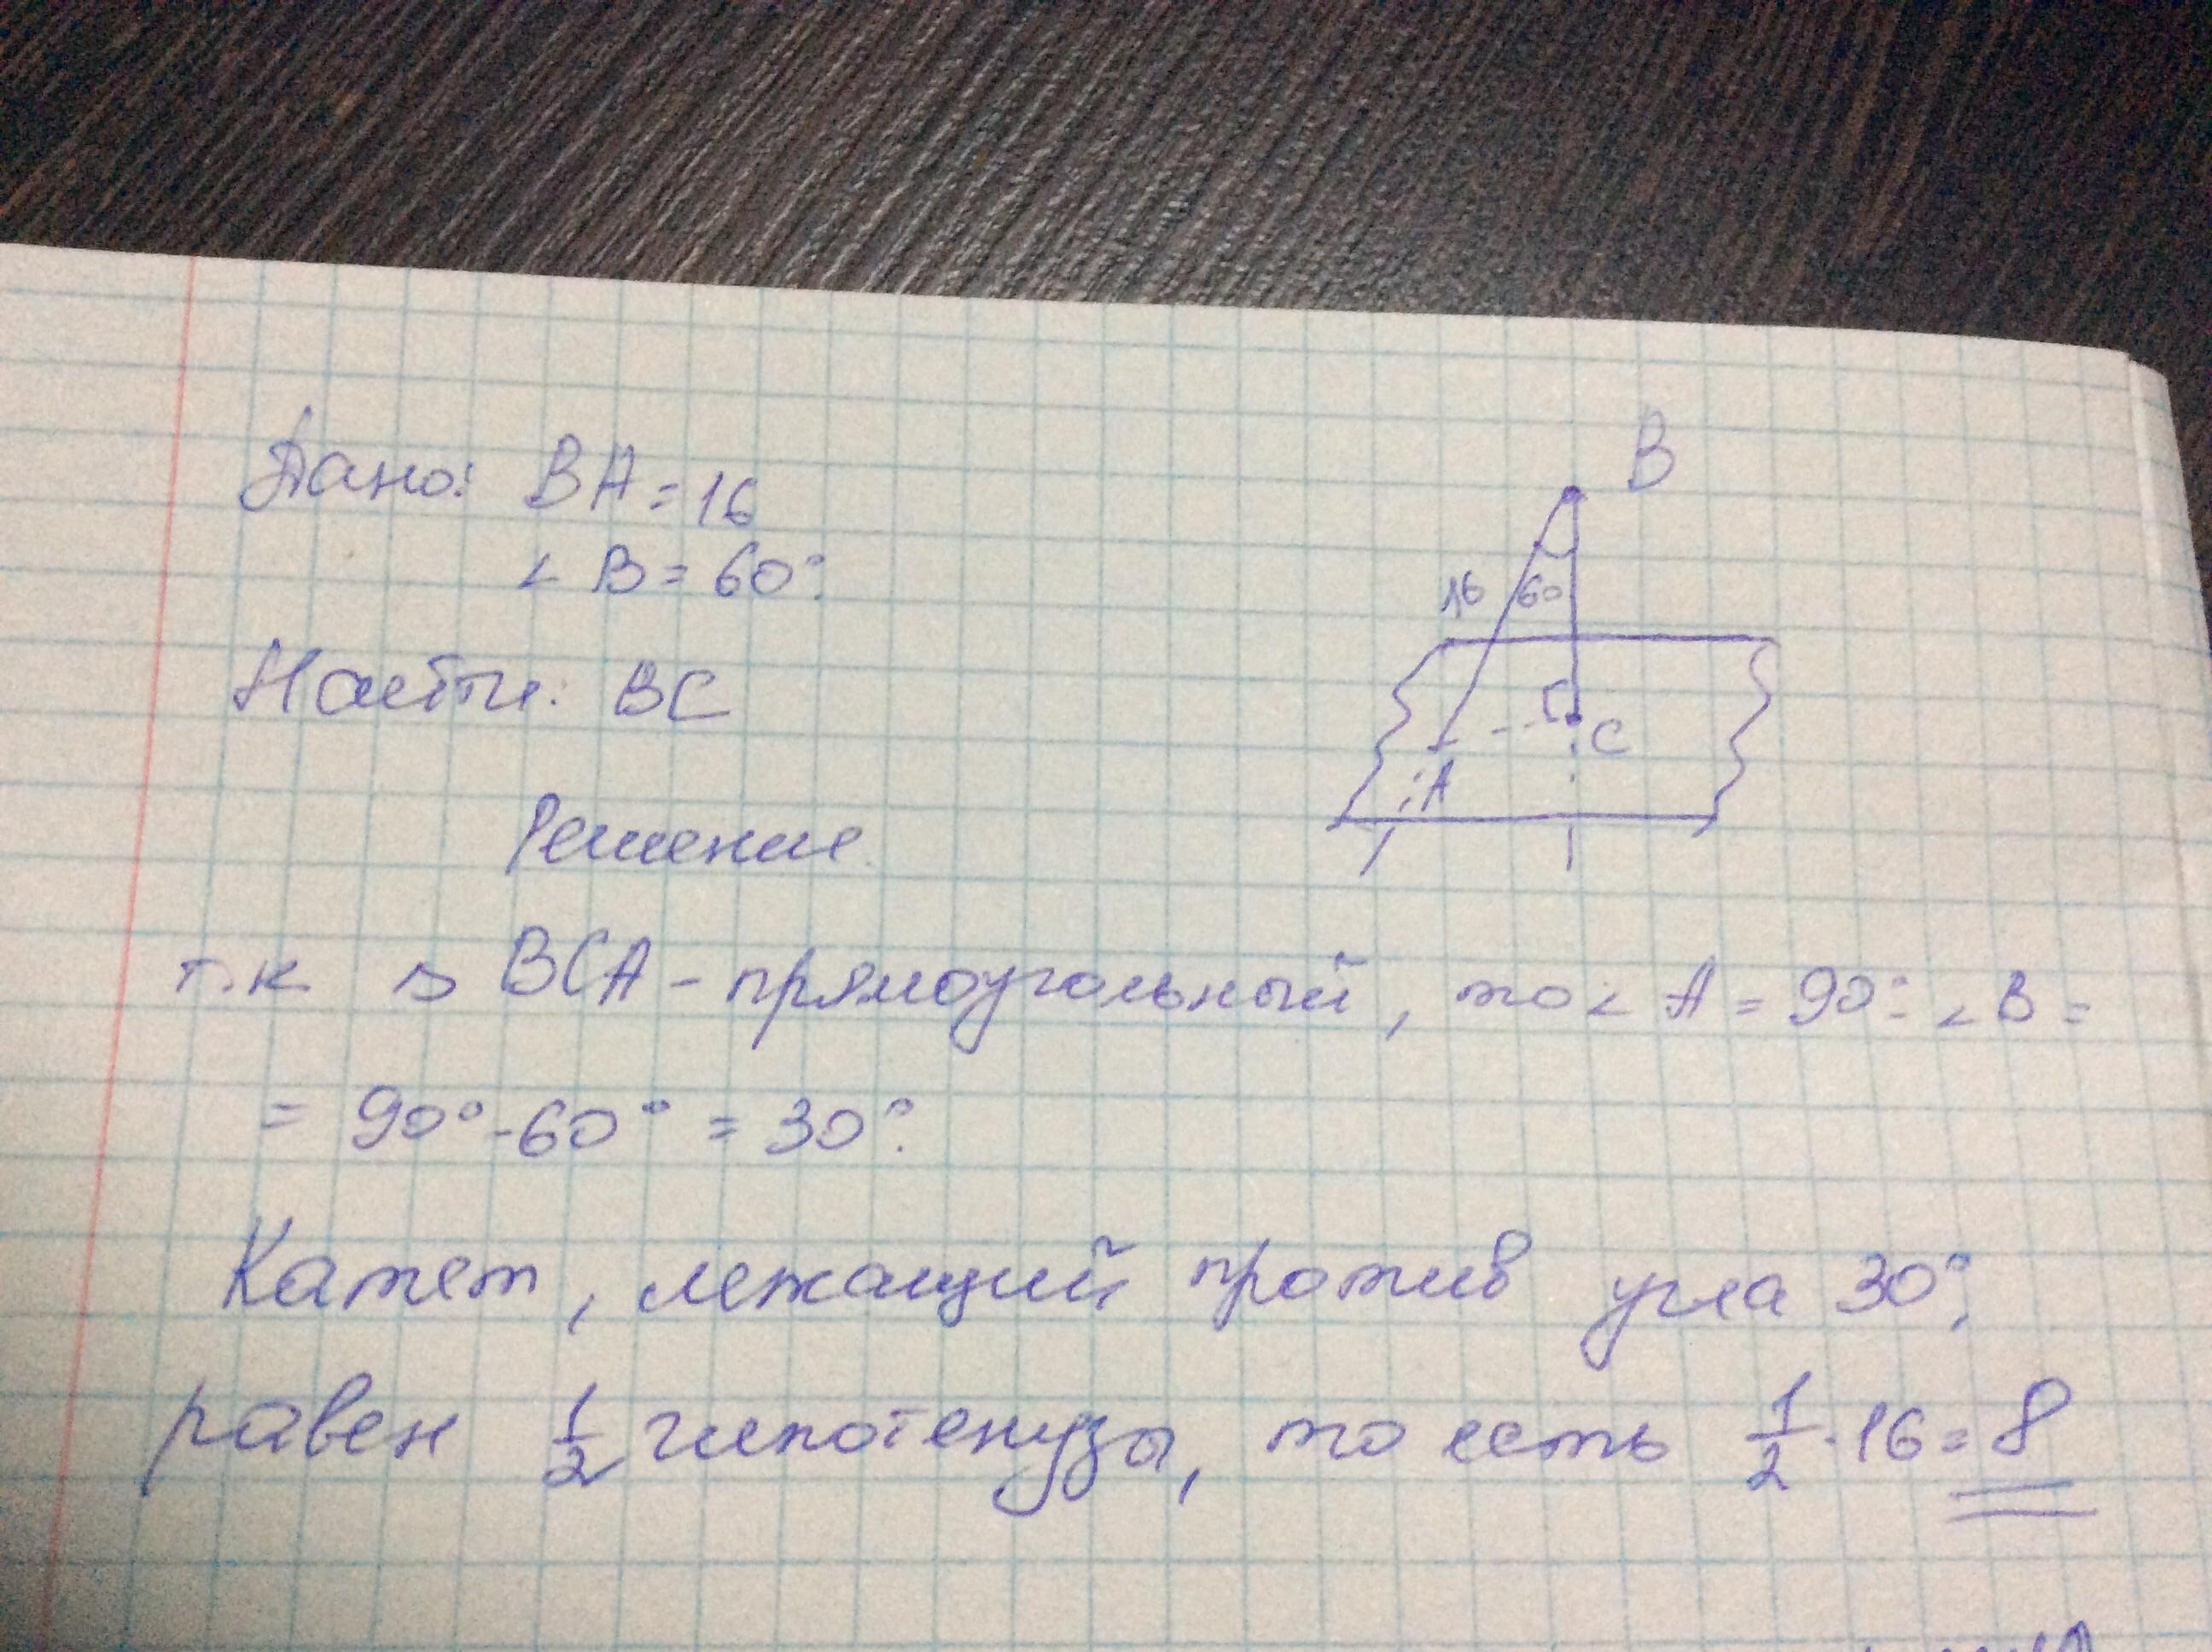 Дано: BA = 16
∠ B = 60°.
Найти: BC
B
16
60
C
A
Решение.
т.к △ BCA - прямоугольный, то ∠ A = 90°- ∠ B =
= 90° - 60° = 30°.
Катет, лежащий против угла 30°,
равен 1/2 гипотенузы, то есть 1/2 · 16 = 8